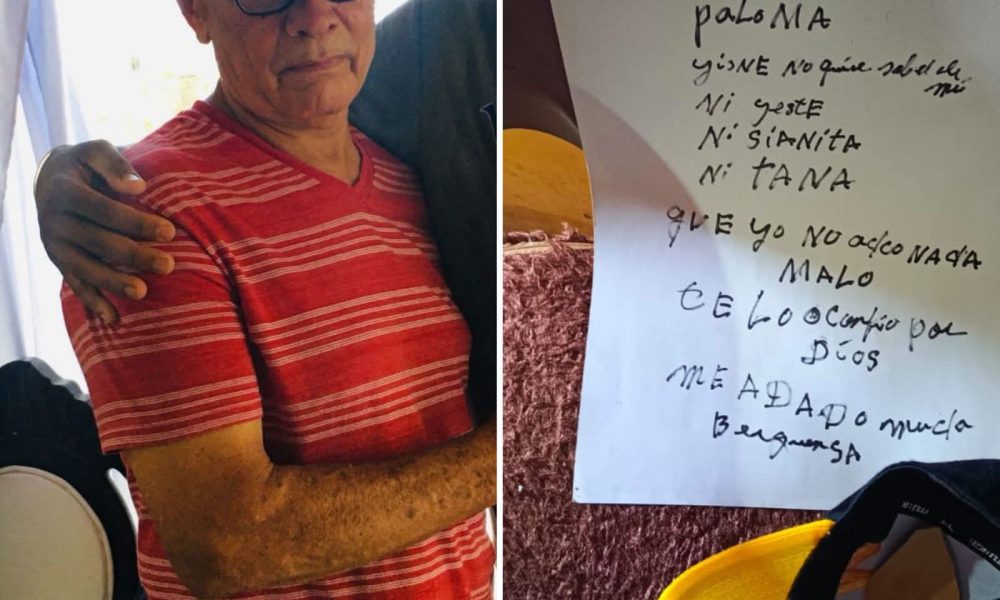 paloMA
yisNE No quiere saber de
mi
Ni yestE
Ni SiANitA
Ni tANA
qUE yo No adco NAdA
MALO
tE Lo oconfio por
Dios
ME ADADO mucda
BerguensA